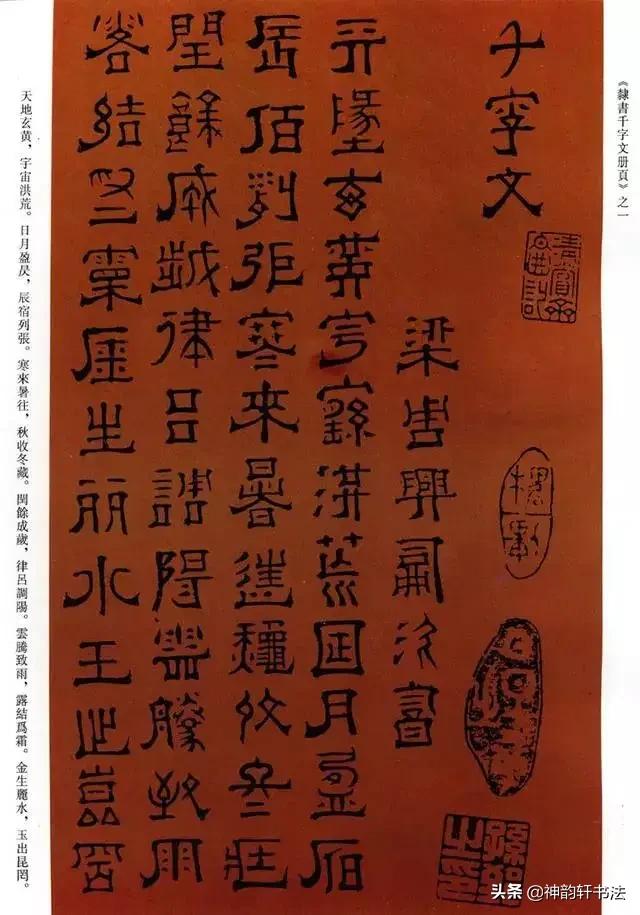 《隸書千字文册頁》之一
千字文
梁周興嗣次
天墬玄黃宇宙洪荒日月盈昃
辰宿列張寒來暑往秋收冬藏
閏餘成歲律呂調陽雲騰致雨
露結爲霜金生麗水玉出崑岡
天地玄黃，宇宙洪荒。日月盈昃，辰宿列張。寒來暑往，秋收冬藏。閏餘成歲，律呂調陽。雲騰致雨，露結爲霜。金生麗水，玉出昆岡。
头条 @神韵轩书法